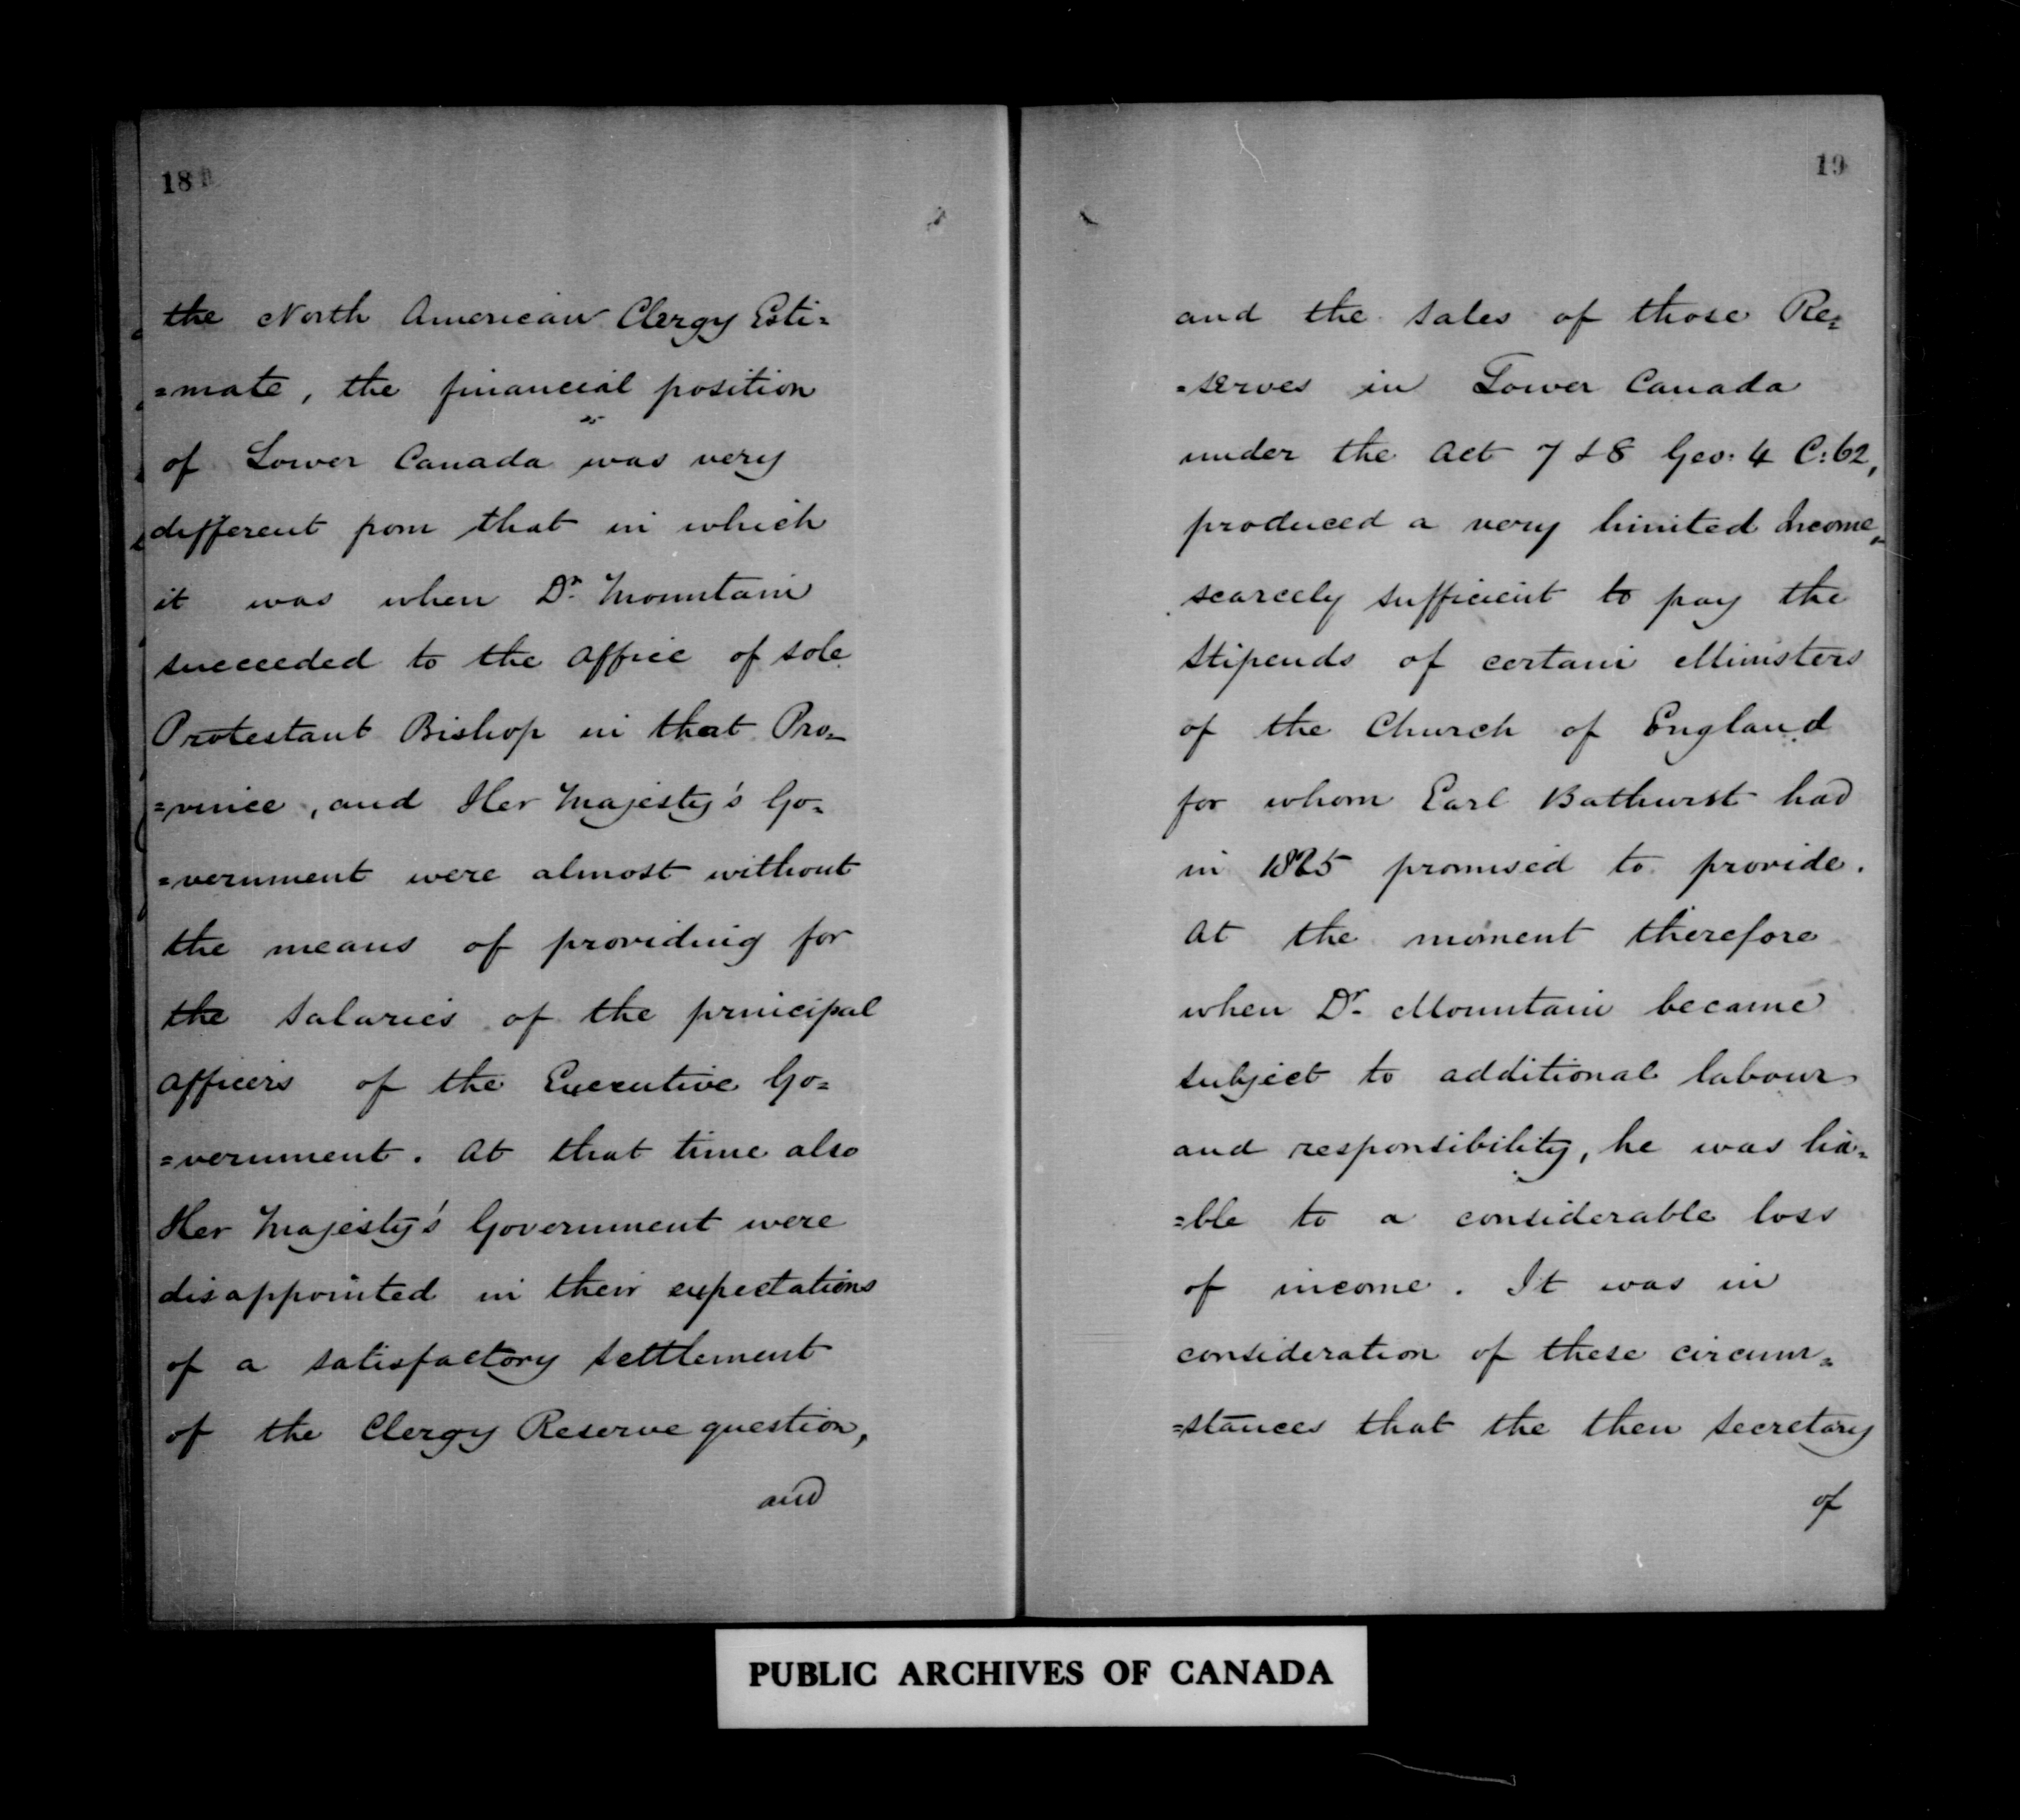 18
the North American Clergy Esti=
=mate, the financial position
of Lower Canada was very
different from that in which
it was when Dr. Mountain
succeeded to the office of sole
Protestant Bishop in that Pro=
=vince, and Her Majesty's Go=
=vernment were almost without
the means of providing for
the salaries of the principal
officers of the Executive Go=
=vernment. At that time also
Her Majesty's Government were
disappointed in their expectations
of a satisfactory settlement
of the Clergy Reserve question,
and
19
and the sales of those Re=
=serves in Lower Canada
under the Act 7 & 8 Geo: 4 C: 62,
produced a very limited Income,
scarcely sufficient to pay the
Stipends of certain Ministers
of the Church of England
for whom Earl Bathurst had
in 1825 promised to provide.
At the moment therefore
when Dr. Mountain became
subject to additional labour
and responsibility, he was lia=
=ble to a considerable loss
of income. It was in
consideration of these circum=
=stances that the then Secretary
of
PUBLIC ARCHIVES OF CANADA